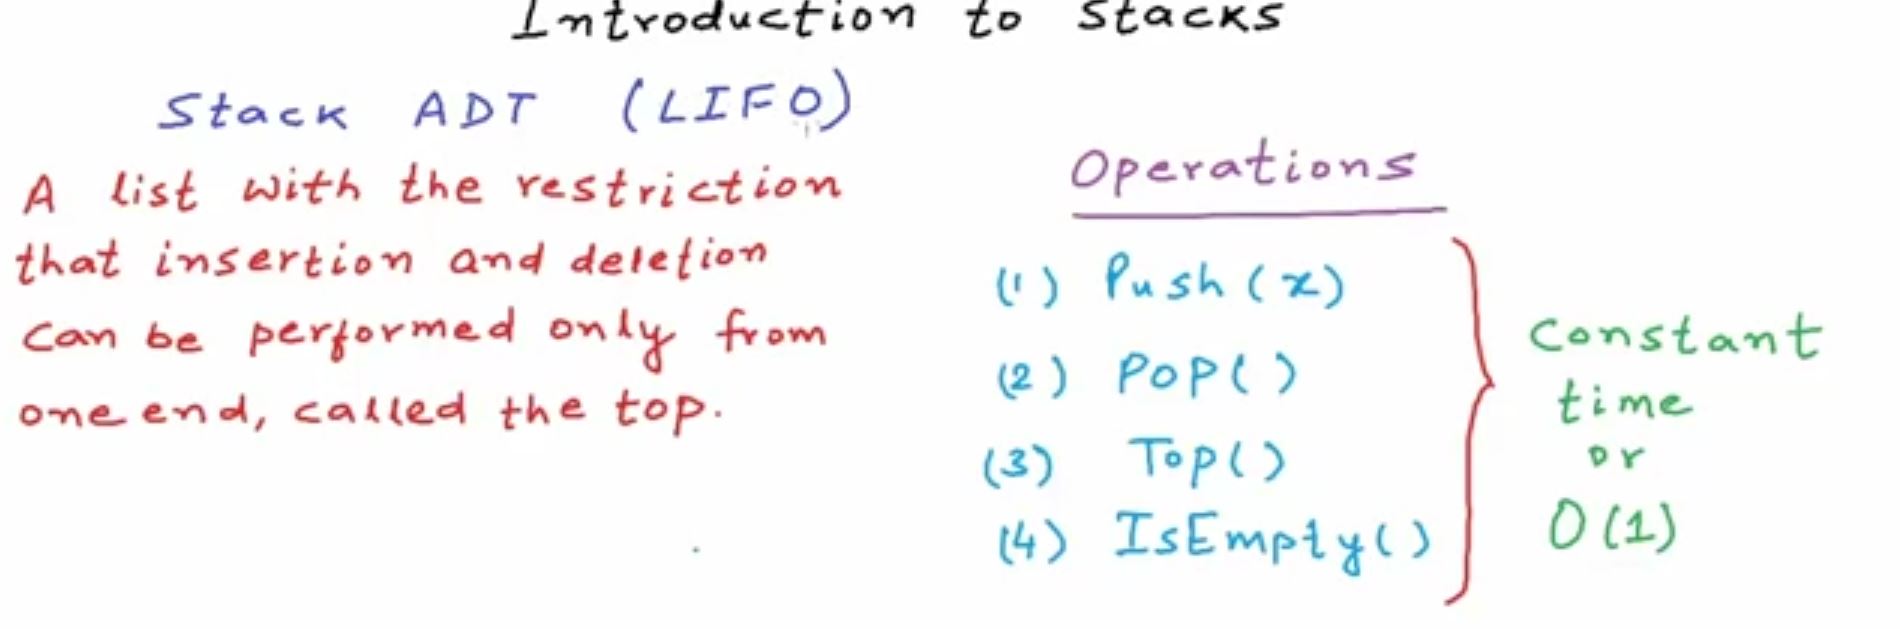 Introduction to Stacks
Stack ADT (LIFO)
A list with the restriction
that insertion and deletion
can be performed only from
one end, called the top.
Operations
(1) Push(x)
(2) Pop()
(3) Top()
(4) IsEmpty()
Constant
time
or
O(1)